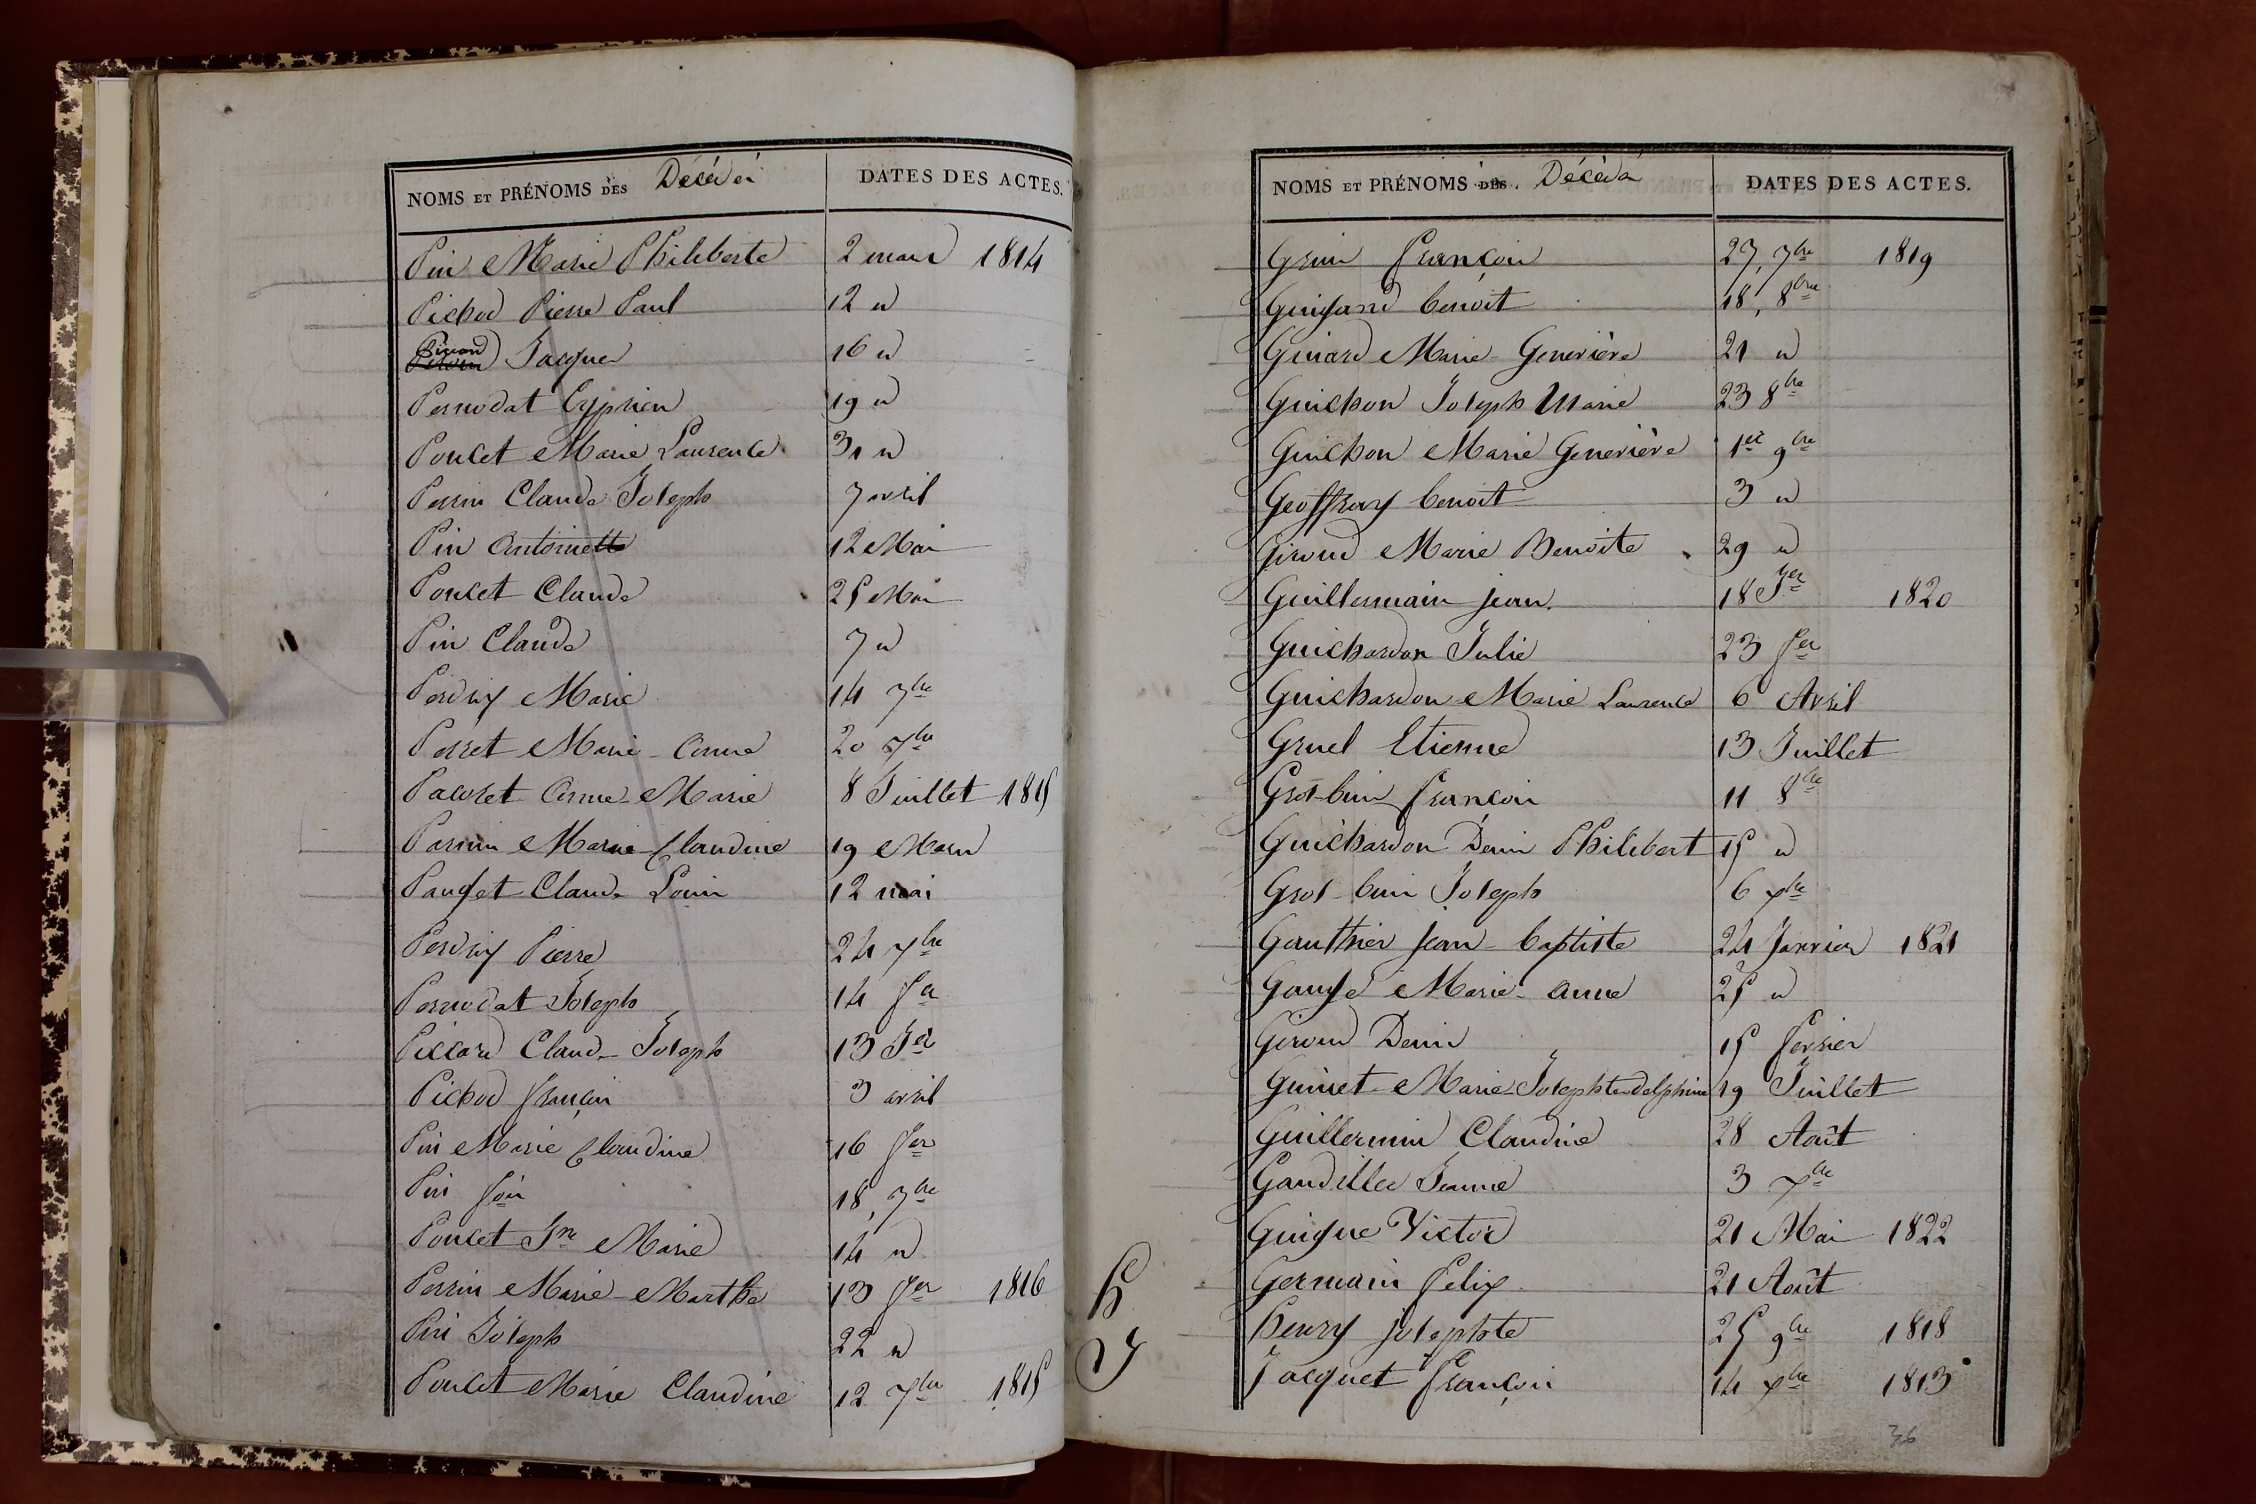 NOMS ET PRÉNOMS DES Décédés DATES DES ACTES.
Pin Marie Philiberte 2 mars 1814
Pichod Pierre Paul 12 "
Jacques 16 "
Pernodat Cyprien 19 "
Poncet Marie Laurence 31 "
Perrin Claude Joseph 7 avril
Pin Antoine 12 Mai
Poncet Claude 25 Mai
Pin Claude 7 "
Perdrix Marie 14 7bre
Perret Marie-Anne 20 7bre
Pacoret Anne-Marie 8 Juillet 1815
Marie Claudine 19 Mars
Pauget Claude Louis 12 mai
Perdrix Pierre 24 xbre
Pernodat Joseph 14 fer
Piccard Claude-Joseph 13 Jer
Pichod françois 3 avril
Pin Marie Claudine 16 fer
Pin 18, 7bre
Poncet Jne Marie 14 "
Perrin Marie-Marthe 13 fer 1816
Pin Joseph 22 "
Poncet Marie Claudine 12 7bre 1815
NOMS ET PRÉNOMS DES Décédés DATES DES ACTES.
françois 27, 7bre 1819
Guigard benoit 18, 8bre
Guiard Marie Geneviève 21 "
Guichon Joseph Marie 23 8bre
Guichon Marie Geneviève 1er 9bre
Geoffray benoit 3 "
Giroud Marie Benoite 29 "
Guillermain jean 18 Jer 1820
Guichardon Julie 23 fer
Guichardon Marie Laurence 6 Avril
Gruel Etienne 13 Juillet
Gros-buis françois 11 8bre
Guichardon Denis Philibert 15 "
Gros-buis Joseph 6 xbre
Gauthier jean-baptiste 24 Janvier 1821
Gauge Marie-anne 25 "
Giroud Denis 15 fevrier
Guinet Marie-Josephte delphine 19 Juillet
Guillermin Claudine 28 Août
Gandillee Jeanne 3 xbre
Guigue Victor 21 Mai 1822
Germain felix 21 Août
h
henry josephte 25 9bre 1818
J
Jacquet françois 14 xbre 1813
36